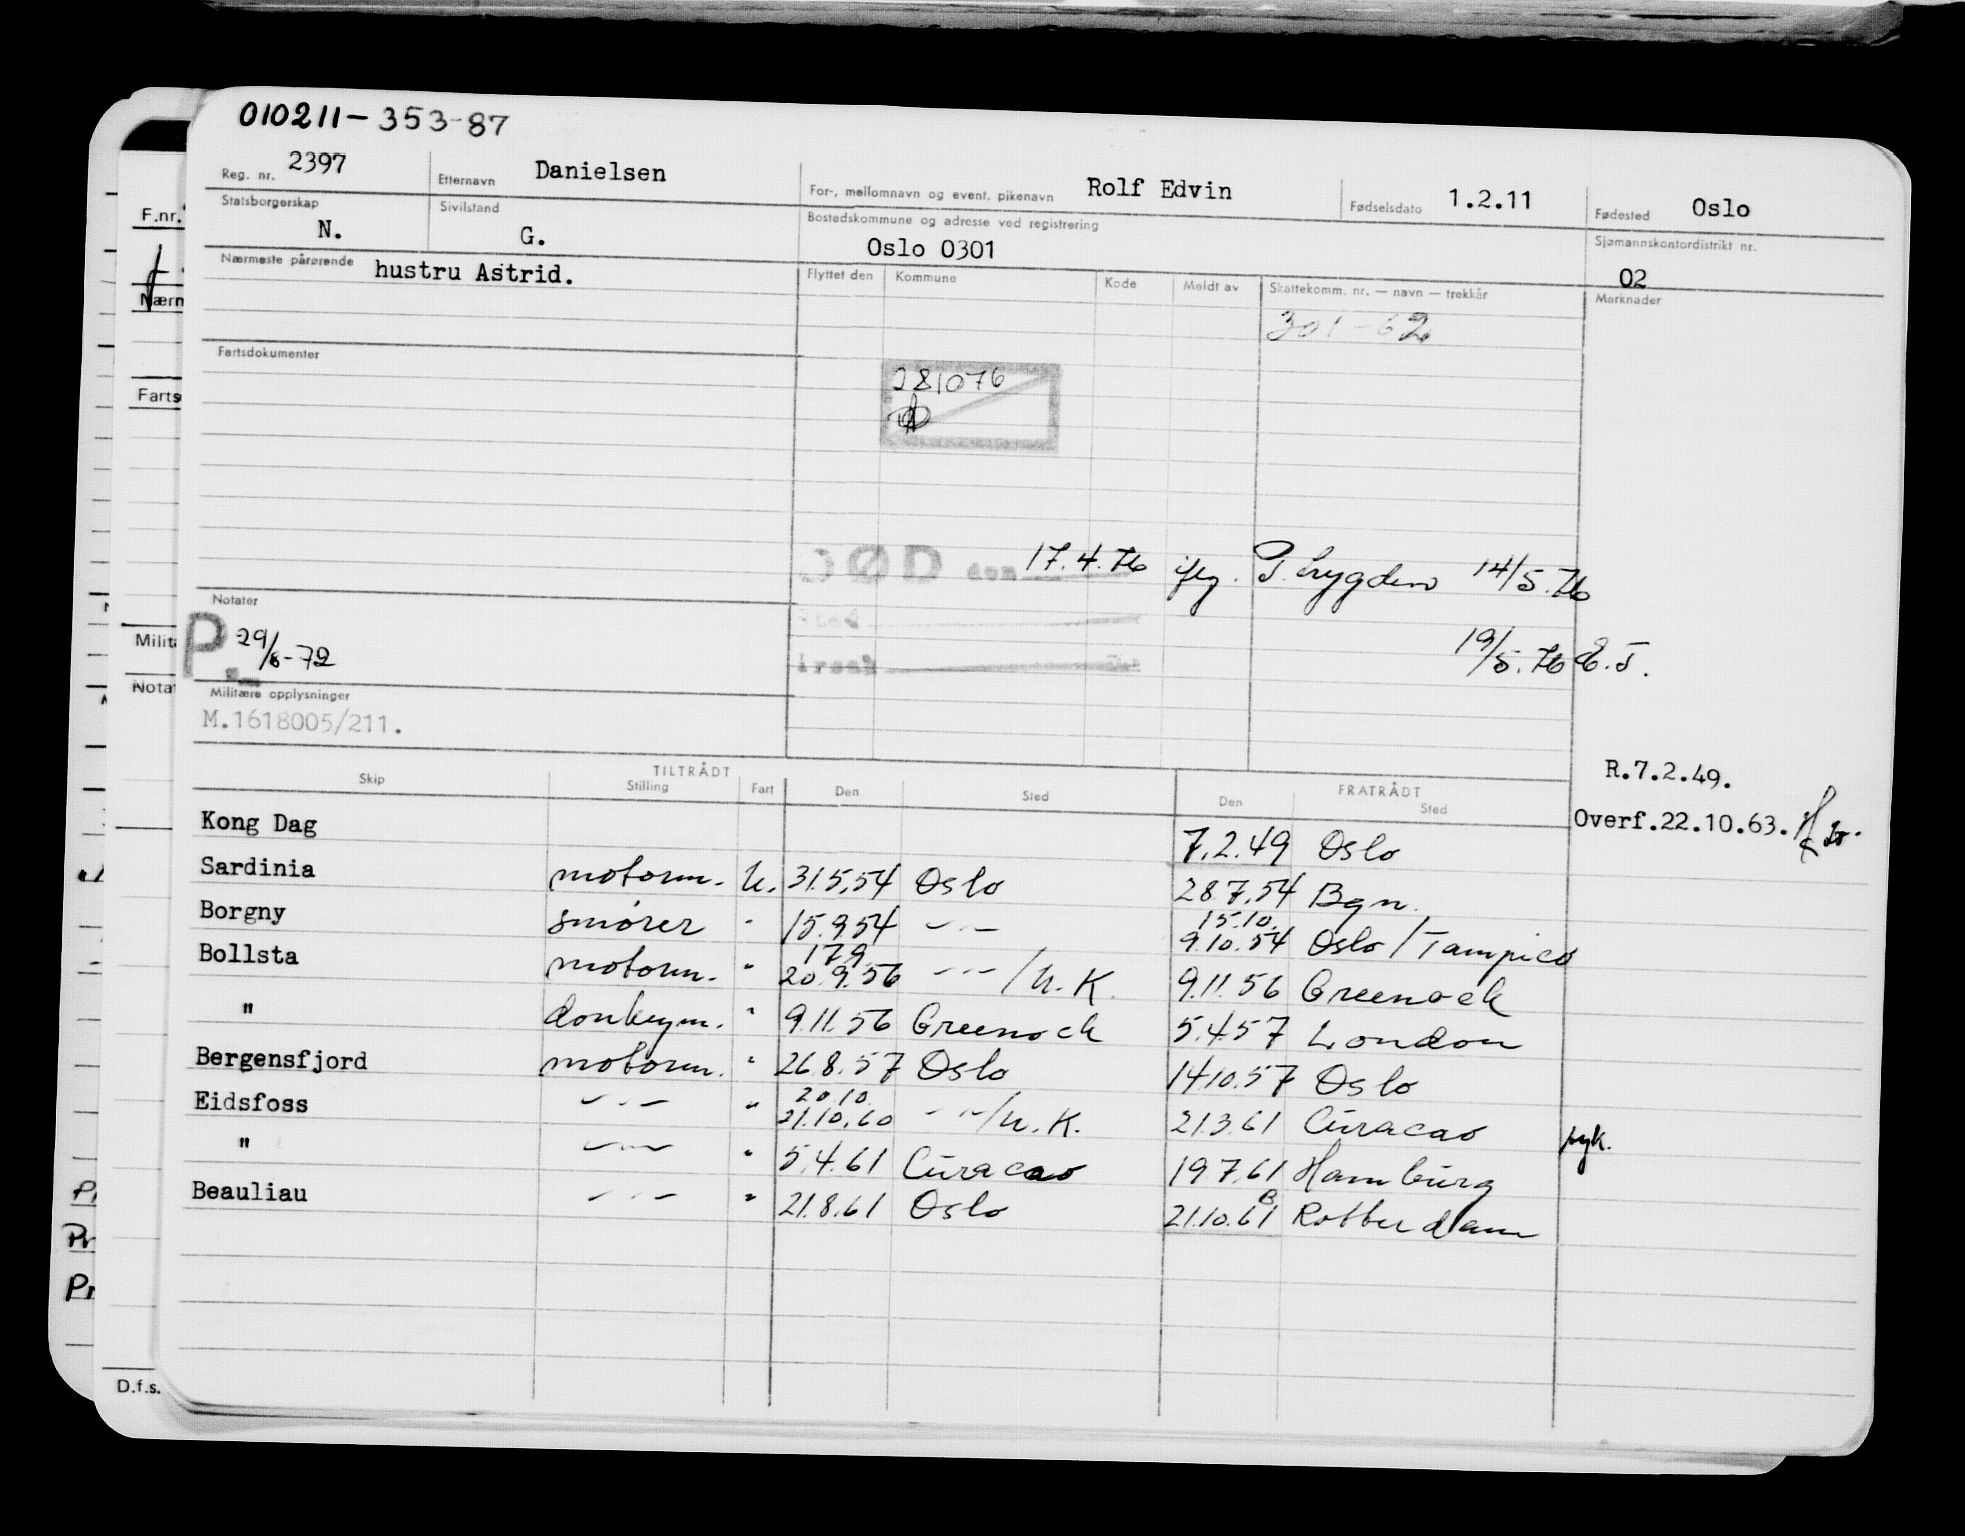 010211-353-87
Reg. nr. 2397 Etternavn Danielsen For-, mellomnavn og event. pikenavn Rolf Edvin Fødselsdato 1.2.11 Fødested Oslo
Statsborgerskap N. Sivilstand G. Bostedskommune og adresse ved registrering Oslo 0301 Sjømannskontordistrikt nr. 02
Nærmeste pårørende hustru Astrid. Flyttet den Kommune Kode Meldt av Skattekomm. nr. — navn — trekkår Merknader
301-62
Fartsdokumenter
281076
DØD den 17.4.76 14/5.76
Sted
19/5.76
Årsak
Notater
P. 29/8-72
Militære opplysninger
M.1618005/211.
R.7.2.49.
Overf.22.10.63.
TILTRÅDT FRATRÅDT
Skip Stilling Fart Den Sted Den Sted
Kong Dag 7.2.49 Oslo
Sardinia motorm. U. 31.5.54 Oslo 28.7.54 Bgn.
Borgny smører " 15.9.54 -"- 15.10. 9.10.54 Oslo/Tampico
Bollsta motorm. " 17.9. 20.9.56 -"-/U.K. 9.11.56 Greenock
" donkeym. " 9.11.56 Greenock 5.4.57 London
Bergensfjord motorm. " 26.8.57 Oslo 14.10.57 Oslo
Eidsfoss -"- " 20.10. 21.10.60 -"-/U.K. 21.3.61 Curacao syk.
" -"- " 5.4.61 Curacao 19.7.61 Hamburg
Beauliau -"- " 21.8.61 Oslo 21.10.61 B Rotterdam
F.nr.
Nærm
Farts
Milit
Nota
Pr
Pr
D.f.s.